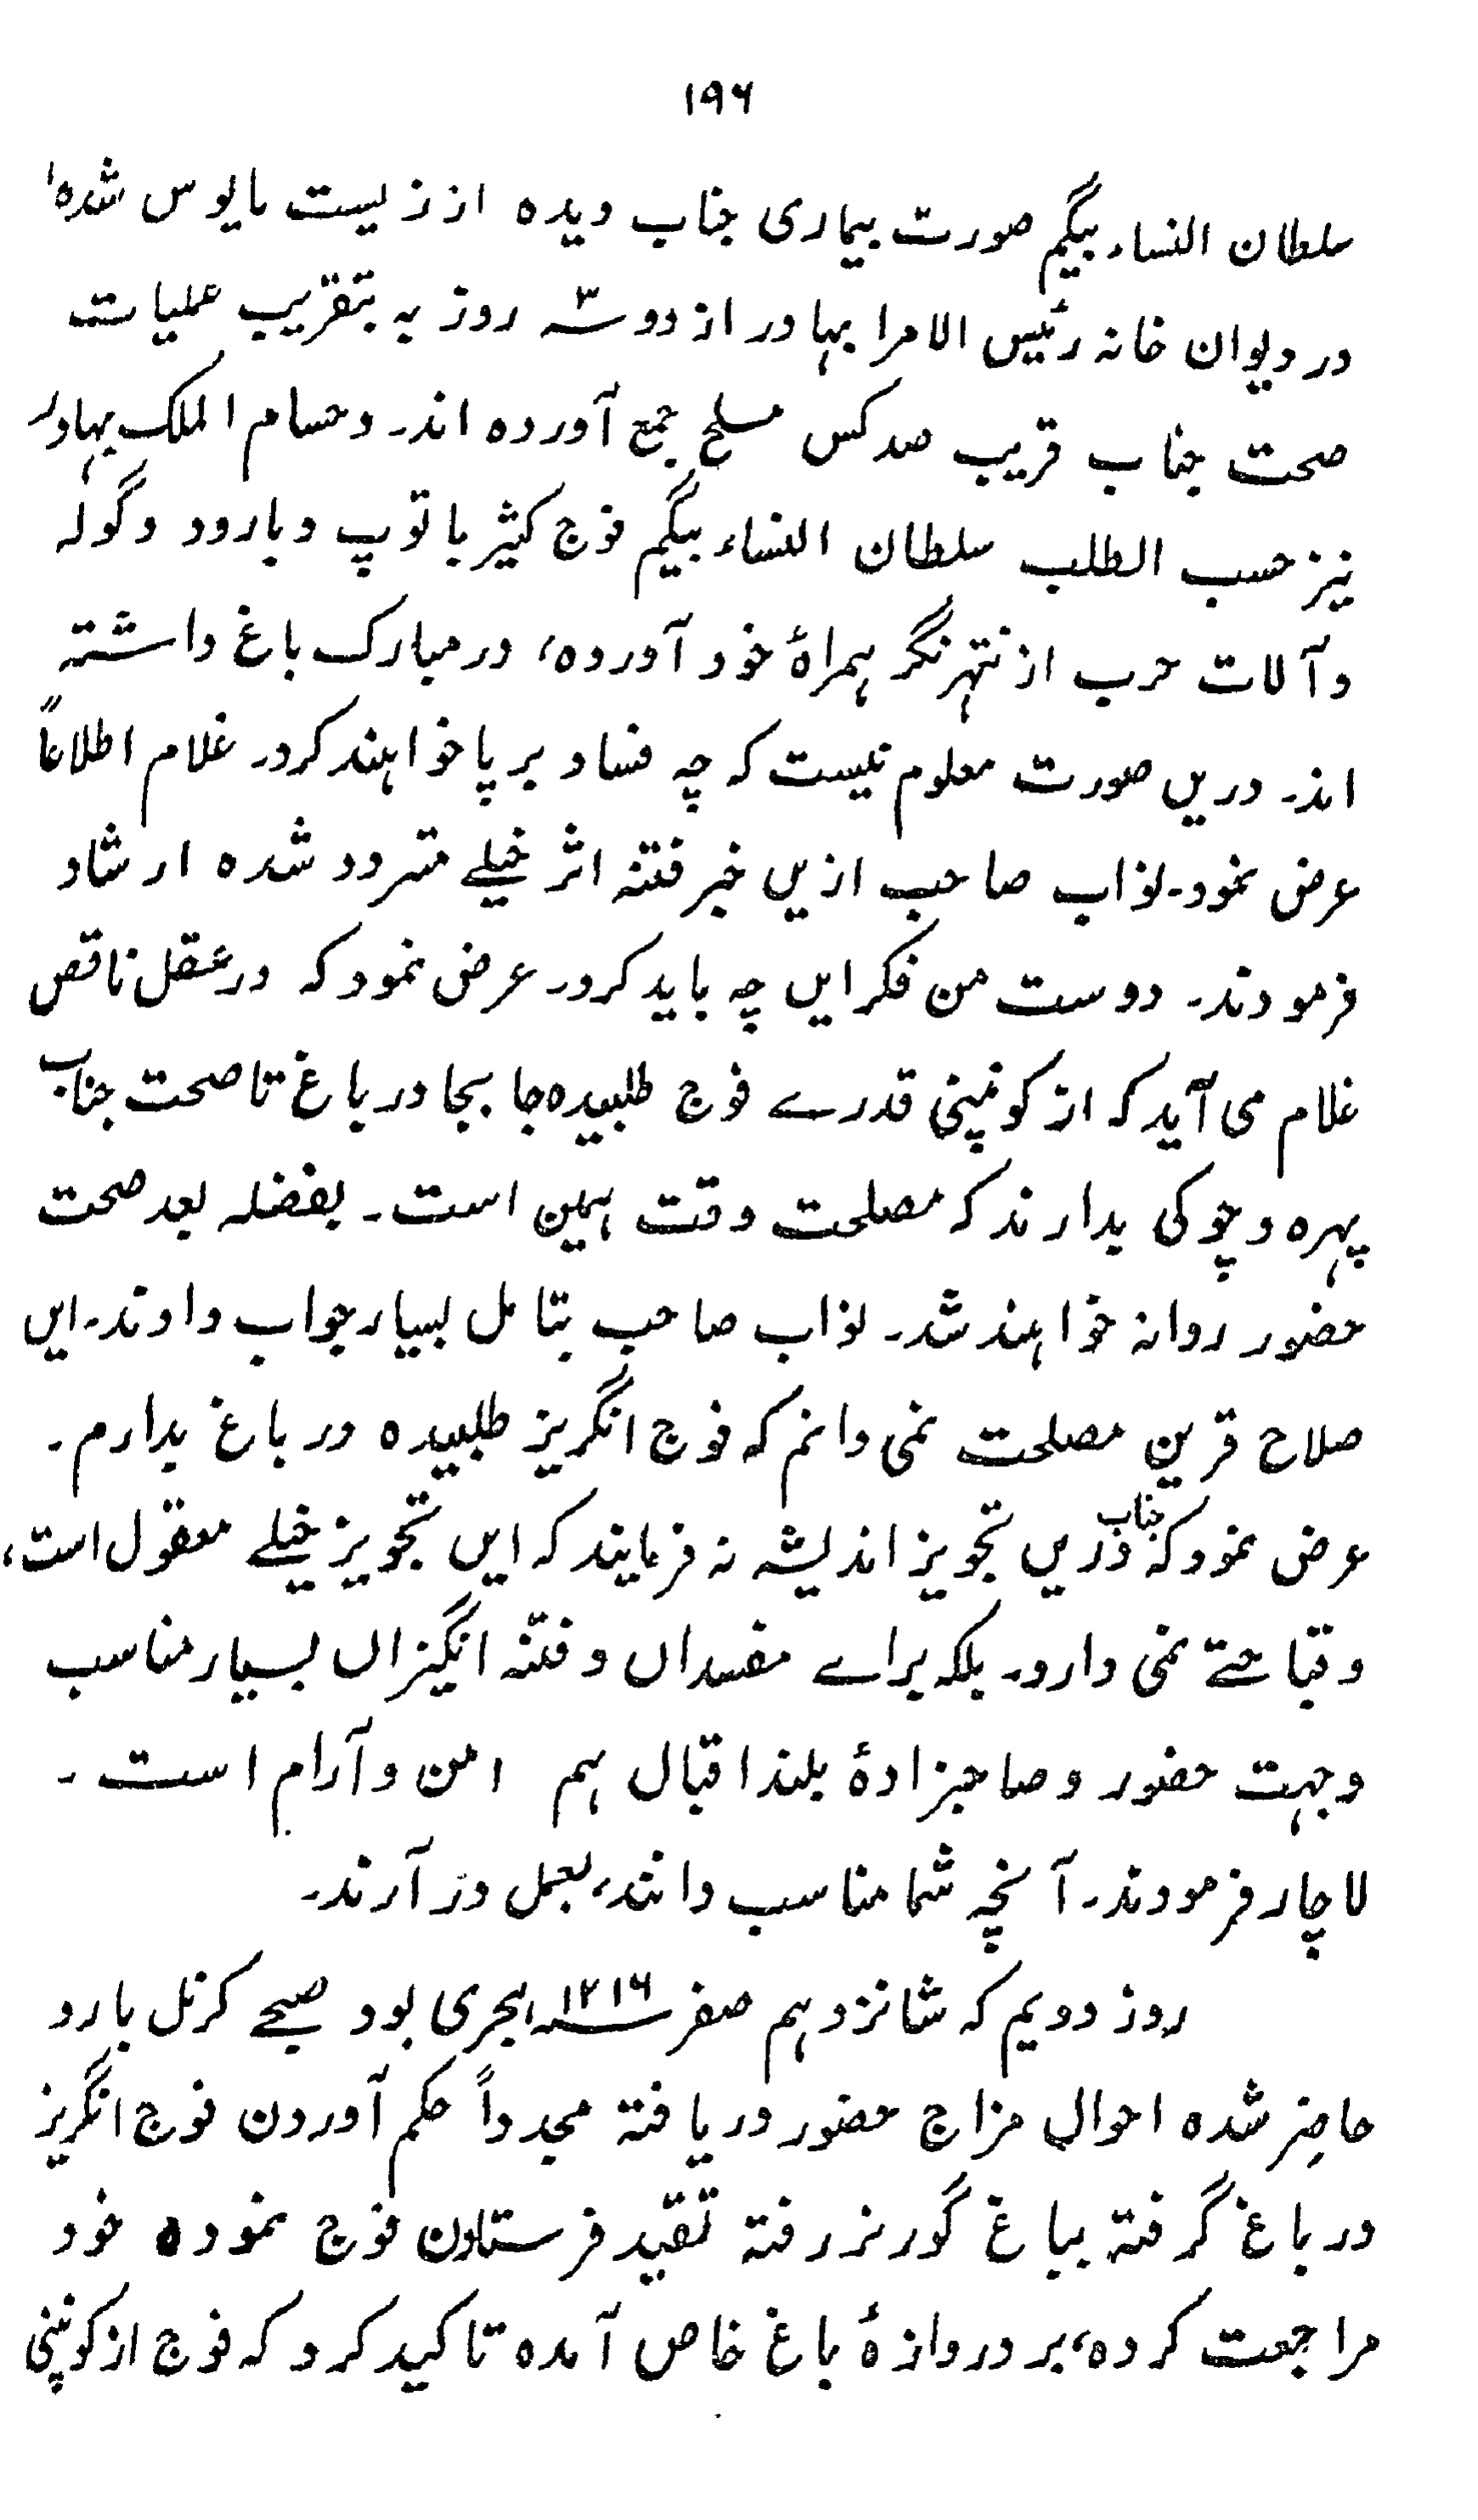 ۱۹۶
سلطان النساء بیگم صورت بیماری جناب دیده از زیست مایوس شده ا
در دیوان خانہ رئیس الامرا بہادر از دو سہ ۳ روز بہ بتقریب عملیات
صحت جناب قریب صد کس مسلح جمع آورده اند۔ و حسام الملک بہادر
نیز حسب الطلب سلطان النساء بیگم فوج کثیر با توپ و بارود و گولہ
و آلات حرب از نتہرنگر ہمراۂ خود آورده، در مبارک باغ داشتہ
اند۔ دریں صورت معلوم نیست کہ چہ فساد برپا خواہند کرد۔ غلام اطلاعاً
عرض نمود۔ نواب صاحب ازیں خبر فتنہ اثر خیلے متردد شده ارشاد
فرمودند۔ دوست من فکر ایں چہ باید کرد۔ عرض نمود کہ در عقل ناقص
غلام می آید کہ از کونپنی قدرے فوج طلبیده جا بجا در باغ تا صحت جناب
پہره و چوکی بدارند کہ مصلحت وقت ہمین است۔ بفضلہ بعد صحت
حضور روانہ خواہند شد۔ نواب صاحب بتامل بسیار جواب دادند۔ ایں
صلاح قرین مصلحت نمی دانم کہ فوج انگریز طلبیده در باغ بدارم۔
عرض نمود کہ جناب دریں تجویز اندیشہ نہ فرمایند کہ ایں تجویز خیلے معقول است،
و قباحتے نمی دارد۔ بلکہ براے مفسداں و فتنہ انگیزاں بسیار مناسب
و جہت حضور و صاحبزادۂ بلند اقبال ہم امن و آرام است۔
لاچار فرمودند۔ آنچہ شما مناسب دانند، بعمل در آرند۔
روز دویم کہ شانزدہم صفر سنہ ۱۲۱۶ ہجری بود صبحے کرنل بارو
حاضر شده احوال مزاج حضور دریافتہ مجدداً حکم آوردن فوج انگریز
در باغ گرفتہ بباغ گورنر رفتہ تقید فرستادن فوج نموده خود
مراجعت کرده، بر دروازۂ باغ خاص آمده تاکید کرد کہ فوج از کونپنی